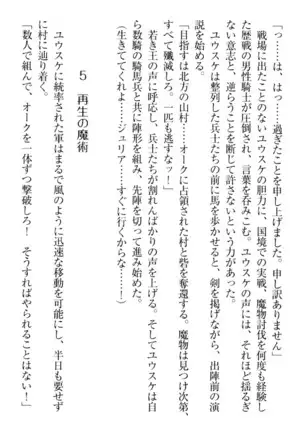 「っ……は、はっ……過ぎたことを申し上げました。申し訳ありません」
戦場に出たことのないユウスケの胆力に、国境での実戦、魔物討伐を何度も経験し
た歴戦の男性騎士が圧倒され、言葉を呑みこむ。ユウスケの声には、それほど揺るぎ
ない意志と、逆らうことを断じて許さないという力があった。
ユウスケは整列した兵士たちの前に馬を歩かせると、剣を掲げながら、出陣前の演
説を始める。
「目指すは北方の山村……オークに占領された村と砦を奪還する。魔物は見つけ次第、
すべて殲滅しろ。一匹も逃すなッ！」
若き王の声に呼応し、兵士たちが割れんばかりの声を上げる。そしてユウスケは自
ら数騎の騎馬兵と共に陣形を組み、先陣を切って進み始めた。
（生きててくれよ……ジュリア……すぐに行くからな……！）
5　再生の魔術
ユウスケに統率された軍はまるで風のように迅速な移動を可能にし、半日も要せず
に村に辿り着く。
「数人で組んで、オークを一体ずつ撃破しろ！　そうすればやられることはない！」